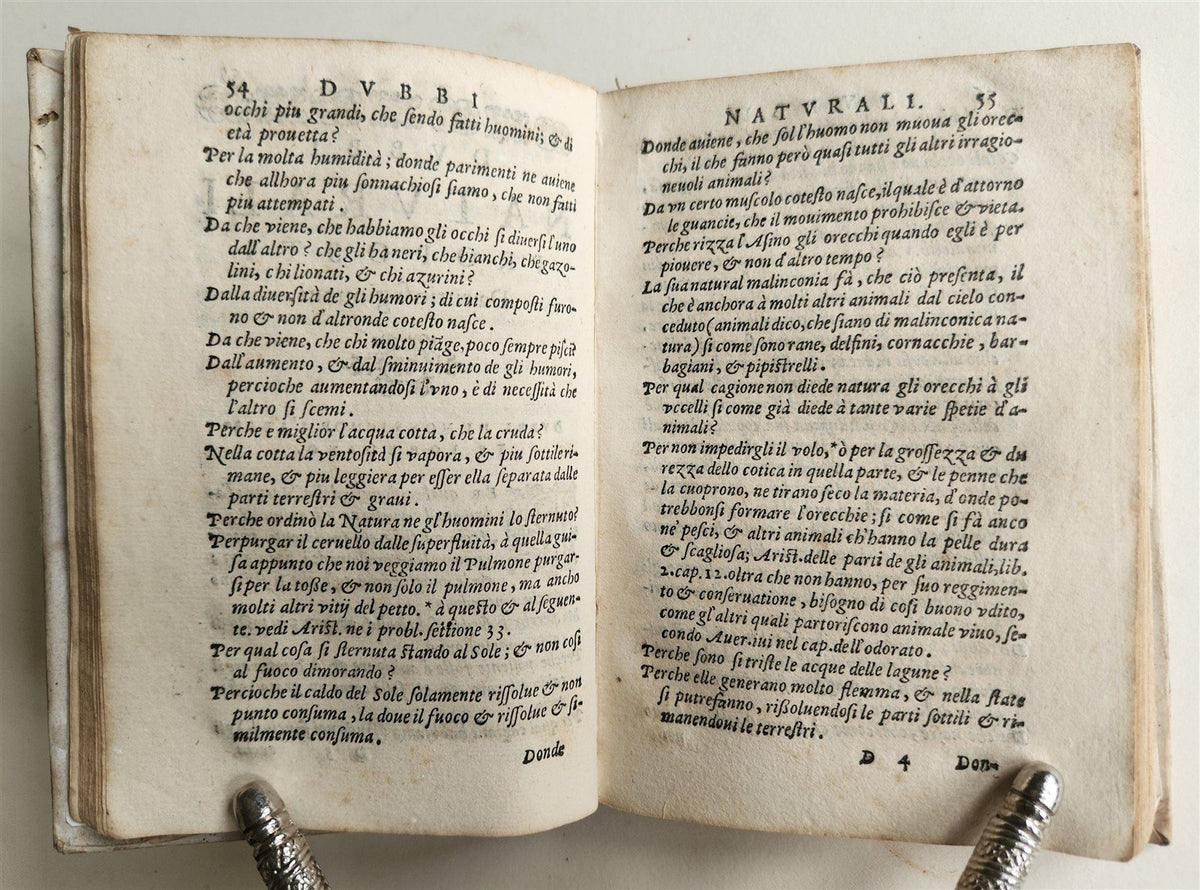 54 DVBBI
occhi piu grandi, che ſendo fatti huomini; & di
età prouetta?
Per la molta humidità; donde parimenti ne auiene
che allhora piu ſonnachioſi ſiamo, che non fatti
piu attempati.
Da che viene, che habbiamo gli occhi ſi diuerſi l'uno
dall'altro? che gli ha neri, che bianchi, che gazo-
lini, chi lionati, & chi azurini?
Dalla diuerſità de gli humori; di cui compoſti furo-
no & non d'altronde coteſto naſce.
Da che viene, che chi molto piãge, poco ſempre piſcia?
Dall'aumento, & dal ſminuimento de gli humori,
percioche aumentandoſi l'vno, è di neceſſità che
l'altro ſi ſcemi.
Perche e miglior l'acqua cotta, che la cruda?
Nella cotta la ventoſità ſi vapora, & piu ſottileri-
mane, & piu leggiera per eſſer ella ſeparata dalle
parti terreſtri & graui.
Perche ordinò la Natura ne gl'huomini lo ſternuto?
Perpurgar il ceruello dalle ſuperfluità, à quella gui-
ſa appunto che noi veggiamo il Pulmone purgar-
ſi per la toße, & non ſolo il pulmone, ma ancho
molti altri vitij del petto. * à queſto & al ſeguen-
te. vedi Ariſt. ne i probl. ſettione 33.
Per qual coſa ſi ſternuta ſtando al Sole; & non coſi
al fuoco dimorando?
Percioche il caldo del Sole ſolamente riſſolue & non
punto conſuma, la doue il fuoco & riſſolue & ſi-
milmente conſuma.
Donde
NATVRALI. 55
Donde auiene, che ſol l'huomo non muoua gli orec-
chi, il che fanno però quaſi tutti gli altri irragio-
neuoli animali?
Da vn certo muſcolo coteſto naſce, il quale è d'attorno
le guancie, che il mouimento prohibiſce & vieta.
Perche rizza l'Aſino gli orecchi quando egli è per
piouere, & non d'altro tempo?
La ſua natural malinconia fà, che ciò preſenta, il
che è anchora à molti altri animali dal cielo con-
ceduto (animali dico, che ſiano di malinconica na-
tura) ſi come ſono rane, delfini, cornacchie, bar-
bagiani, & pipiſtrelli.
Per qual cagione non diede natura gli orecchi à gli
vccelli ſi come già diede à tante varie ſpetie d'a-
nimali?
Per non impedirgli il volo, * ò per la groſſezza & du
rezza dello cotica in quella parte, & le penne che
la cuoprono, ne tirano ſeco la materia, d'onde po-
trebbonſi formare l'orecchie; ſi come ſi fà anco
ne' peſci, & altri animali ch'hanno la pelle dura
& ſcaglioſa; Ariſt. delle parti de gli animali, lib.
2. cap. 12. oltra che non hanno, per ſuo reggimen-
to & conſeruatione, biſogno di coſi buono vdito,
come gl'altri quali partoriſcono animale viuo, ſe-
condo Auer. iui nel cap. dell'odorato.
Perche ſono ſi triſte le acque delle lagune?
Perche elle generano molto flemma, & nella ſtate
ſi putrefanno, rißoluendoſi le parti ſottili & ri-
manendoui le terreſtri.
D 4 Don-